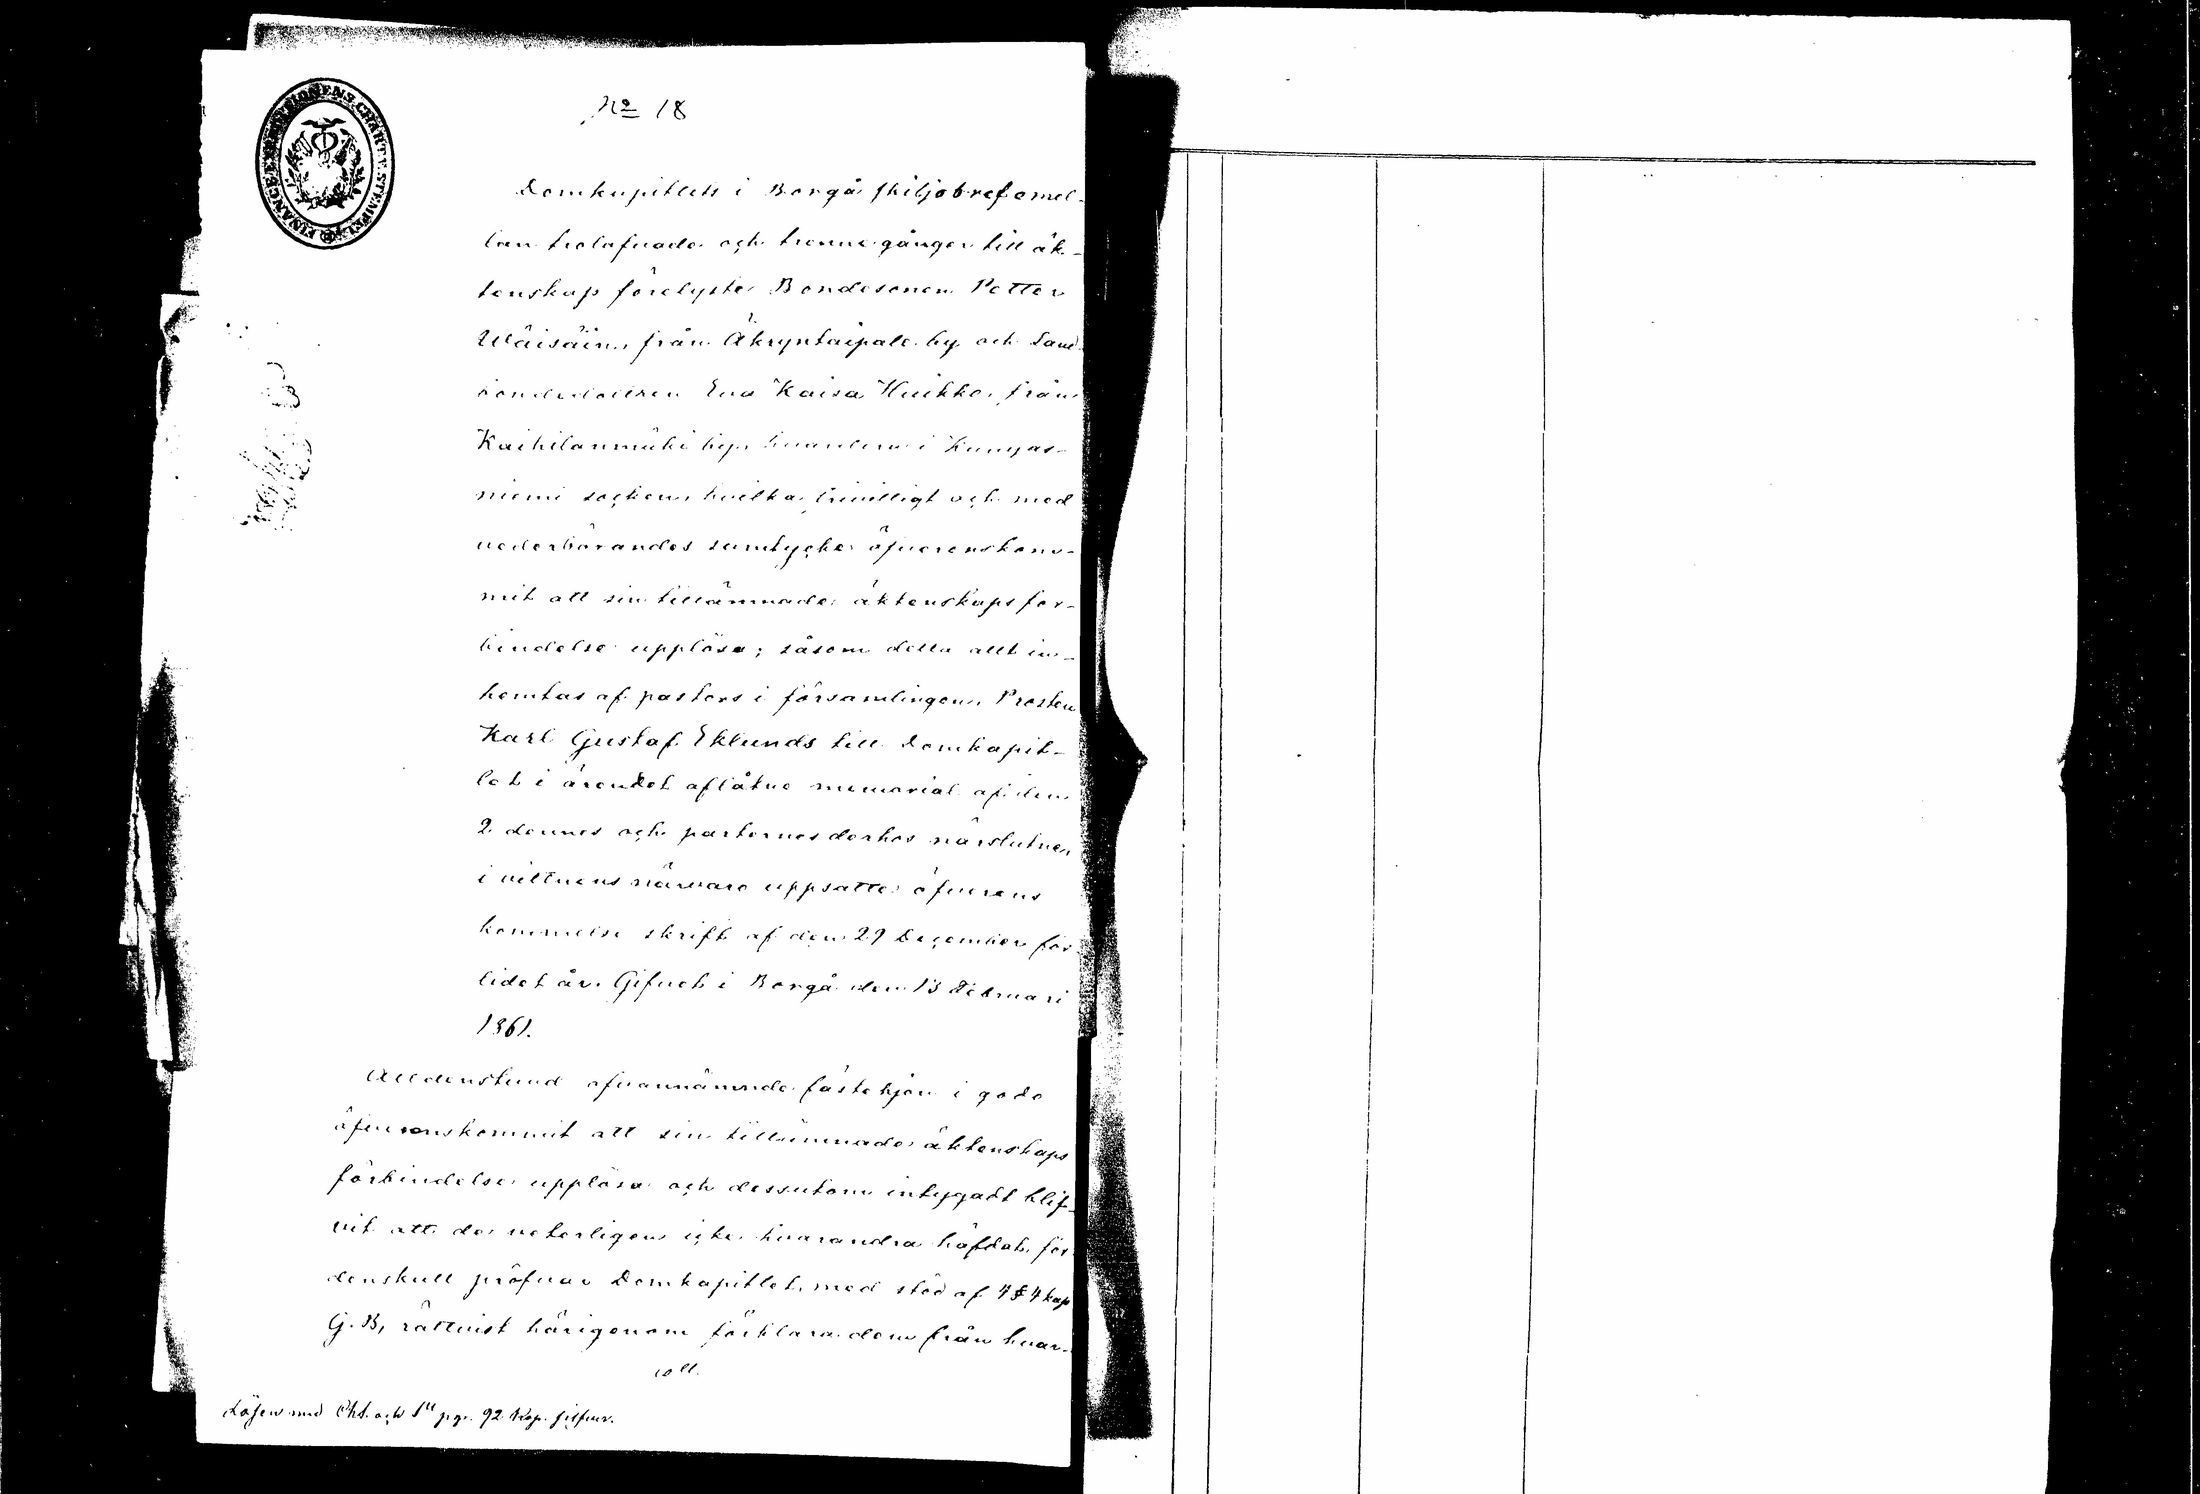 FINANCE EXPEDITIONENS CHARTÆ STEMPEL
No 18
Domkapitlets i Borgå skiljobref emel-
lan trolofvade och trenne gånger till äk-
tenskap förelyste Bondesonen Petter
Wäisäin, från Äkryntaipale by och Land-
bondedottren Eva Kaisa Huikko, från
Kaihilanmäki by, hvardera i Kangas-
niemi socken, hvilka frivilligt och med
vederbörandes samtycke öfverenskom-
mit att sin tillämnade äktenskaps för-
bindelse upplösa; såsom detta allt in-
hemtas af pastors i församlingen, Prosten
Karl Gustaf Eklunds till Domkapit-
let i ärendet aflåtne memorial af den
2 dennes och parternes derhos närslutne,
i vittnens närvaro uppsatte öfverens
kommelse skrift af den 29 December för-
lidet år. Gifvet i Borgå den 13 Februari
1861.
Alldenstund ofvannämnde fästehjon i godo
öfverenskommit att sin tillämnade äktenskaps
förbindelse upplösa och dessutom intygadt blif-
vit att de veterligen icke hvarandra häfdat, för
denskull pröfvar Domkapitlet, med stöd af 4 § 4 kap
G. B, rättvist härigenom förklara dem från hvar-
coll.
Lösen med Cht. och pgr. 92 Kop. silfver.